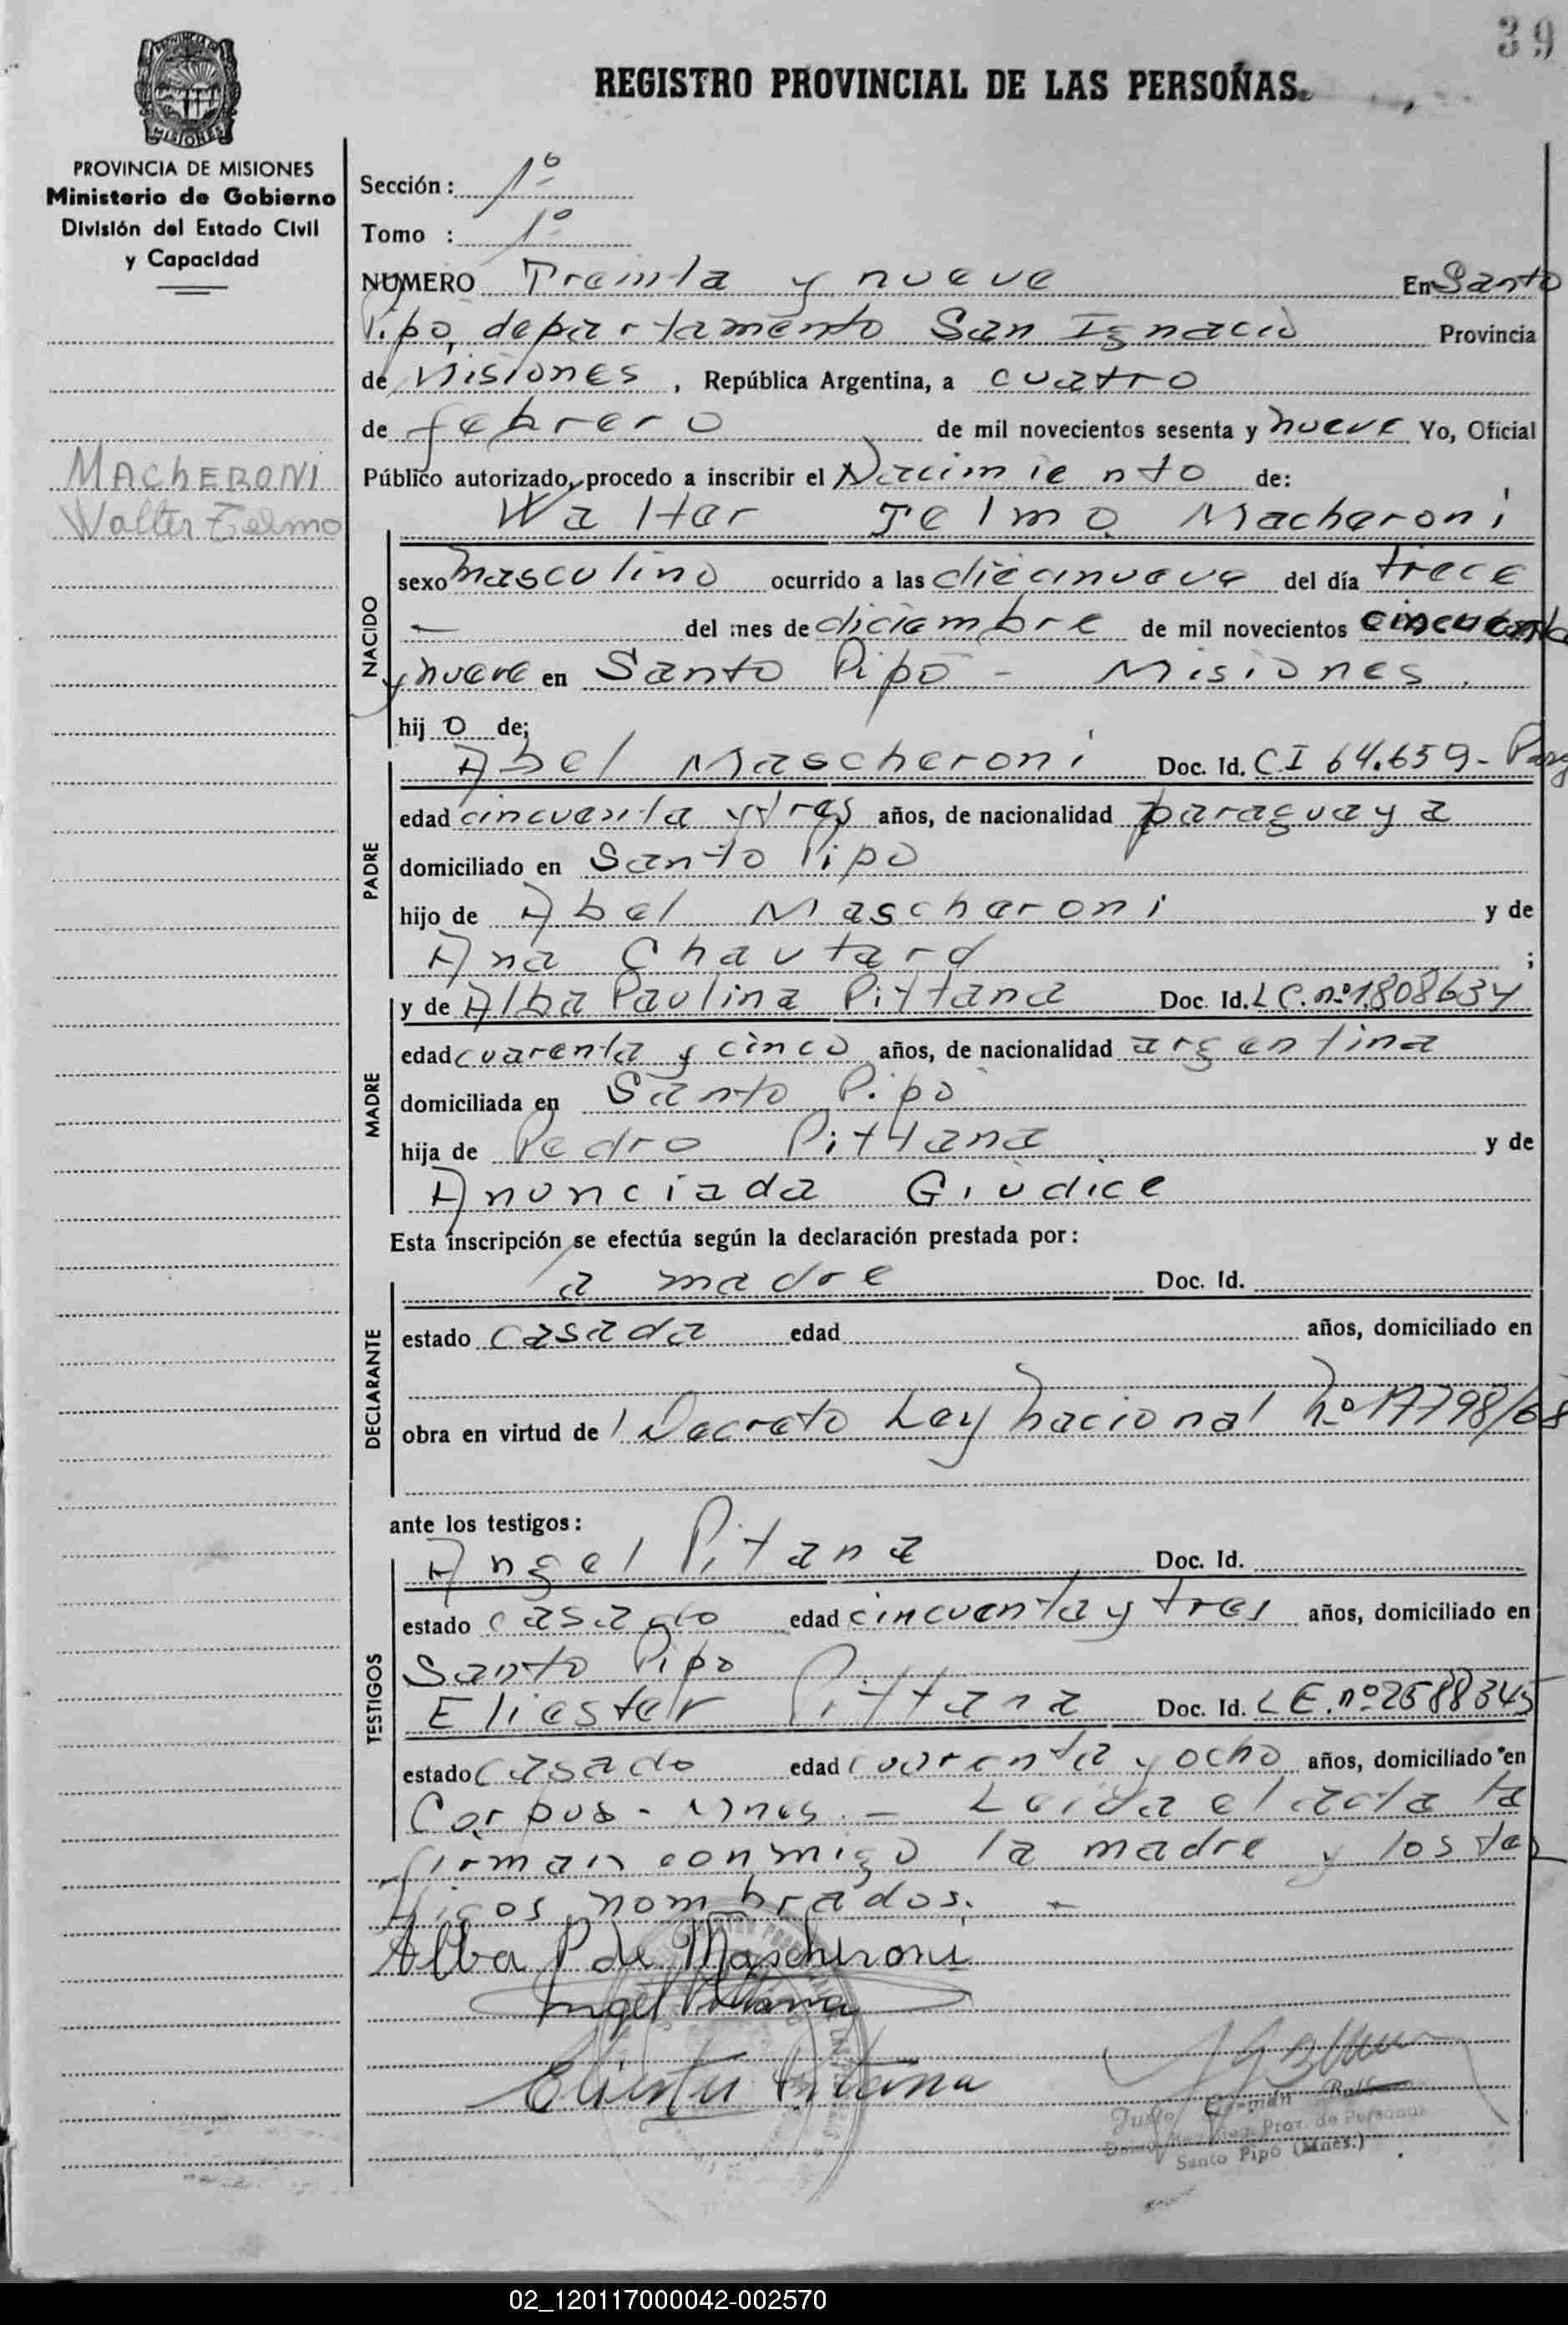 39
REGISTRO PROVINCIAL DE LAS PERSONAS.
PROVINCIA DE MISIONES
PROVINCIA DE MISIONES
Ministerio de Gobierno
División del Estado Civil
y Capacidad
MACHERONI
Walter Telmo
Sección: 1º
Tomo : 1º
NUMERO Treinta y nueve En Santo
Pipó, departamento San Ignacio Provincia
de Misiones, República Argentina, a cuatro
de febrero de mil novecientos sesenta y nueve Yo, Oficial
Público autorizado, procedo a inscribir el Nacimiento de:
Walter Telmo Macheroni
NACIDO
sexo masculino ocurrido a las diecinueve del día trece
— del mes de diciembre de mil novecientos cincuenta
y nueve en Santo Pipó - Misiones.
hij o de;
PADRE
Abel Mascheroni Doc. Id. CI 64.659- Parg
edad cincuenta y tres años, de nacionalidad paraguaya
domiciliado en Santo Pipó
hijo de Abel Mascheroni y de
Ana Chautard ;
MADRE
y de Alba Paulina Pittana Doc. Id. L C. nº 1.808634
edad cuarenta y cinco años, de nacionalidad argentina
domiciliada en Santo Pipó
hija de Pedro Pittana y de
Anunciada Giudice
Esta inscripción se efectúa según la declaración prestada por:
DECLARANTE
la madre Doc. Id.
estado casada edad años, domiciliado en
obra en virtud de l Decreto Ley Nacional Nº 17798/68
ante los testigos:
TESTIGOS
Angel Pitana Doc. Id.
estado casado edad cincuenta y tres años, domiciliado en
Santo Pipó
Eliester Pittana Doc. Id. L E. nº 2588345
estado casado edad cuarenta y ocho años, domiciliado en
Corpus - Mnes. - Leída el acta la
firman conmigo la madre y los tes
tigos nombrados. -
Alba P de Mascheroni
Angel Pittana
Eliester Pittana
Justo Germán
Prov. de Personas
Santo Pipó (Mnes.)
02_120117000042-002570